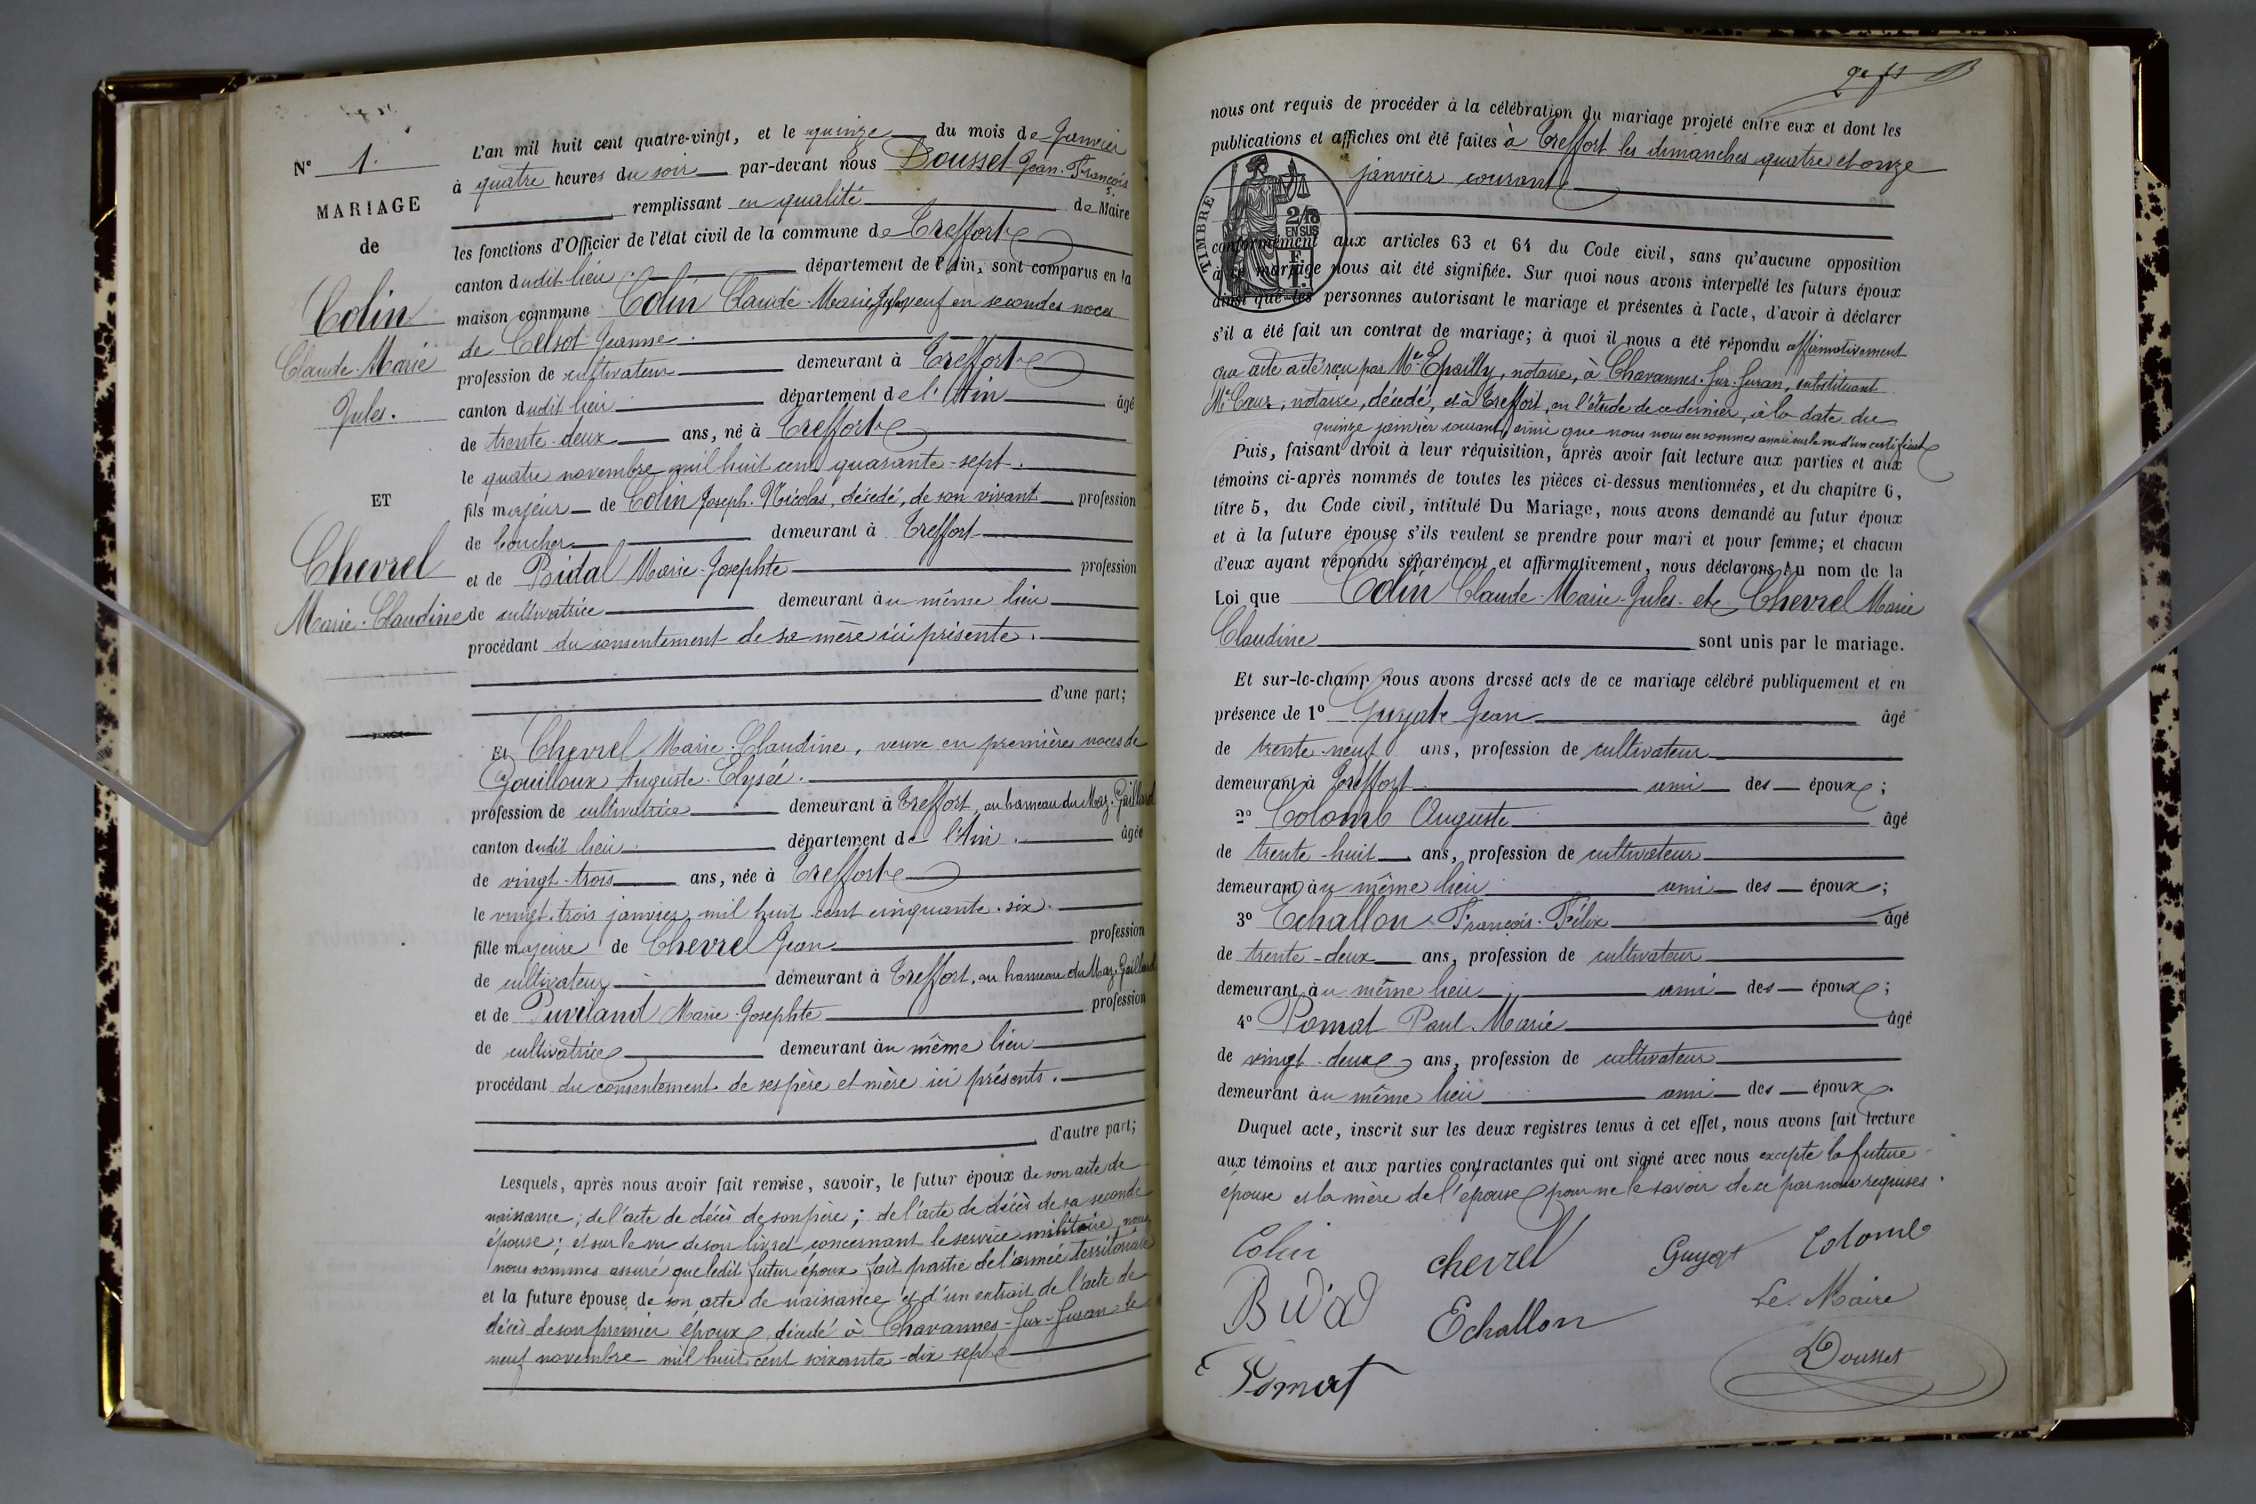 N° 1.
MARIAGE
de
Colin
Claude-Marie
Jules.
ET
Chevrel
Marie-Claudine
L'an mil huit cent quatre-vingt, et le quinze du mois de Janvier
à quatre heures du soir par-devant nous Dousset Jean-François
remplissant en qualité de Maire
les fonctions d'Officier de l'état civil de la commune de Treffort
canton dudit lieu département de l'Ain, sont comparus en la
maison commune Colin Claude-Marie-Jules, veuf en secondes noces
de Jeanne.
profession de cultivateur demeurant à Treffort
canton dudit lieu département de l'Ain âgé
de trente-deux ans, né à Treffort
le quatre novembre mil huit cent quarante-sept.
fils majeur de Colin Joseph-Nicolas, décédé, de son vivant profession
de boucher demeurant à Treffort
et de Bidal Marie-Josephte profession
de cultivatrice demeurant au même lieu
procédant du consentement de sa mère ici présente.
d'une part;
Et Chevrel Marie-Claudine, veuve en premières noces de
Gouilloux Auguste-Elysée.
profession de cultivatrice demeurant à Treffort, au hameau du Maz-Gaillard
canton dudit lieu département de l'Ain. âgée
de vingt-trois ans, née à Treffort
le vingt-trois janvier mil huit cent cinquante-six.
fille majeure de Chevrel Jean profession
de cultivateur demeurant à Treffort, au hameau du Maz-Gaillard
et de Puveland Marie-Josephte profession
de cultivatrice demeurant au même lieu
procédant du consentement de ses père et mère ici présents.
d'autre part;
Lesquels, après nous avoir fait remise, savoir, le futur époux de son acte de
naissance; de l'acte de décès de son père; de l'acte de décès de sa seconde
épouse; et sur le vu de son livret concernant le service militaire, nous
nous sommes assuré que ledit futur époux fait partie de l'armée territoriale
et la future épouse de son acte de naissance et d'un extrait de l'acte de
décès de son premier époux, décédé à Chavannes-Sur-Suran le
neuf novembre mil huit cent soixante-dix-sept
nous ont requis de procéder à la célébration du mariage projeté entre eux et dont les
publications et affiches ont été faites à Treffort les dimanches quatre et onze
janvier courant
TIMBRE
2/10
EN SUS
F.
1.
conformément aux articles 63 et 64 du Code civil, sans qu'aucune opposition
à ce mariage nous ait été signifiée. Sur quoi nous avons interpellé les futurs époux
ainsi que les personnes autorisant le mariage et présentes à l'acte, d'avoir à déclarer
s'il a été fait un contrat de mariage; à quoi il nous a été répondu affirmativement
que acte a été reçu par Me Epailly, notaire, à Chavannes-Sur-Suran, substituant
Me Cœur, notaire, décédé, et à Treffort, en l'étude de ce dernier, à la date du
quinze janvier courant, ainsi que nous nous en sommes assuré sur le vu d'un certificat
Puis, faisant droit à leur réquisition, après avoir fait lecture aux parties et aux
témoins ci-après nommés de toutes les pièces ci-dessus mentionnées, et du chapitre 6,
titre 5, du Code civil, intitulé Du Mariage, nous avons demandé au futur époux
et à la future épouse s'ils veulent se prendre pour mari et pour femme; et chacun
d'eux ayant répondu séparément et affirmativement, nous déclarons au nom de la
Loi que Colin Claude-Marie-Jules et Chevrel Marie
Claudine sont unis par le mariage.
Et sur-le-champ nous avons dressé acte de ce mariage célébré publiquement et en
présence de 1° Guyat Jean âgé
de trente-neuf ans, profession de cultivateur
demeurant à Treffort ami des époux;
2° Colomb Auguste âgé
de trente-huit ans, profession de cultivateur
demeurant au même lieu ami des époux;
3° Echallon François-Félix âgé
de trente-deux ans, profession de cultivateur
demeurant au même lieu ami des époux;
4° Pomat Paul-Marie âgé
de vingt-deux ans, profession de cultivateur
demeurant au même lieu ami des époux.
Duquel acte, inscrit sur les deux registres tenus à cet effet, nous avons fait lecture
aux témoins et aux parties contractantes qui ont signé avec nous excepté la future
épouse et la mère de l'épouse pour ne le savoir de ce par nous requises.
Colin
chevrel
Guyat
Colomb
Bidal
Echallon
Le Maire
Pomat
Dousset